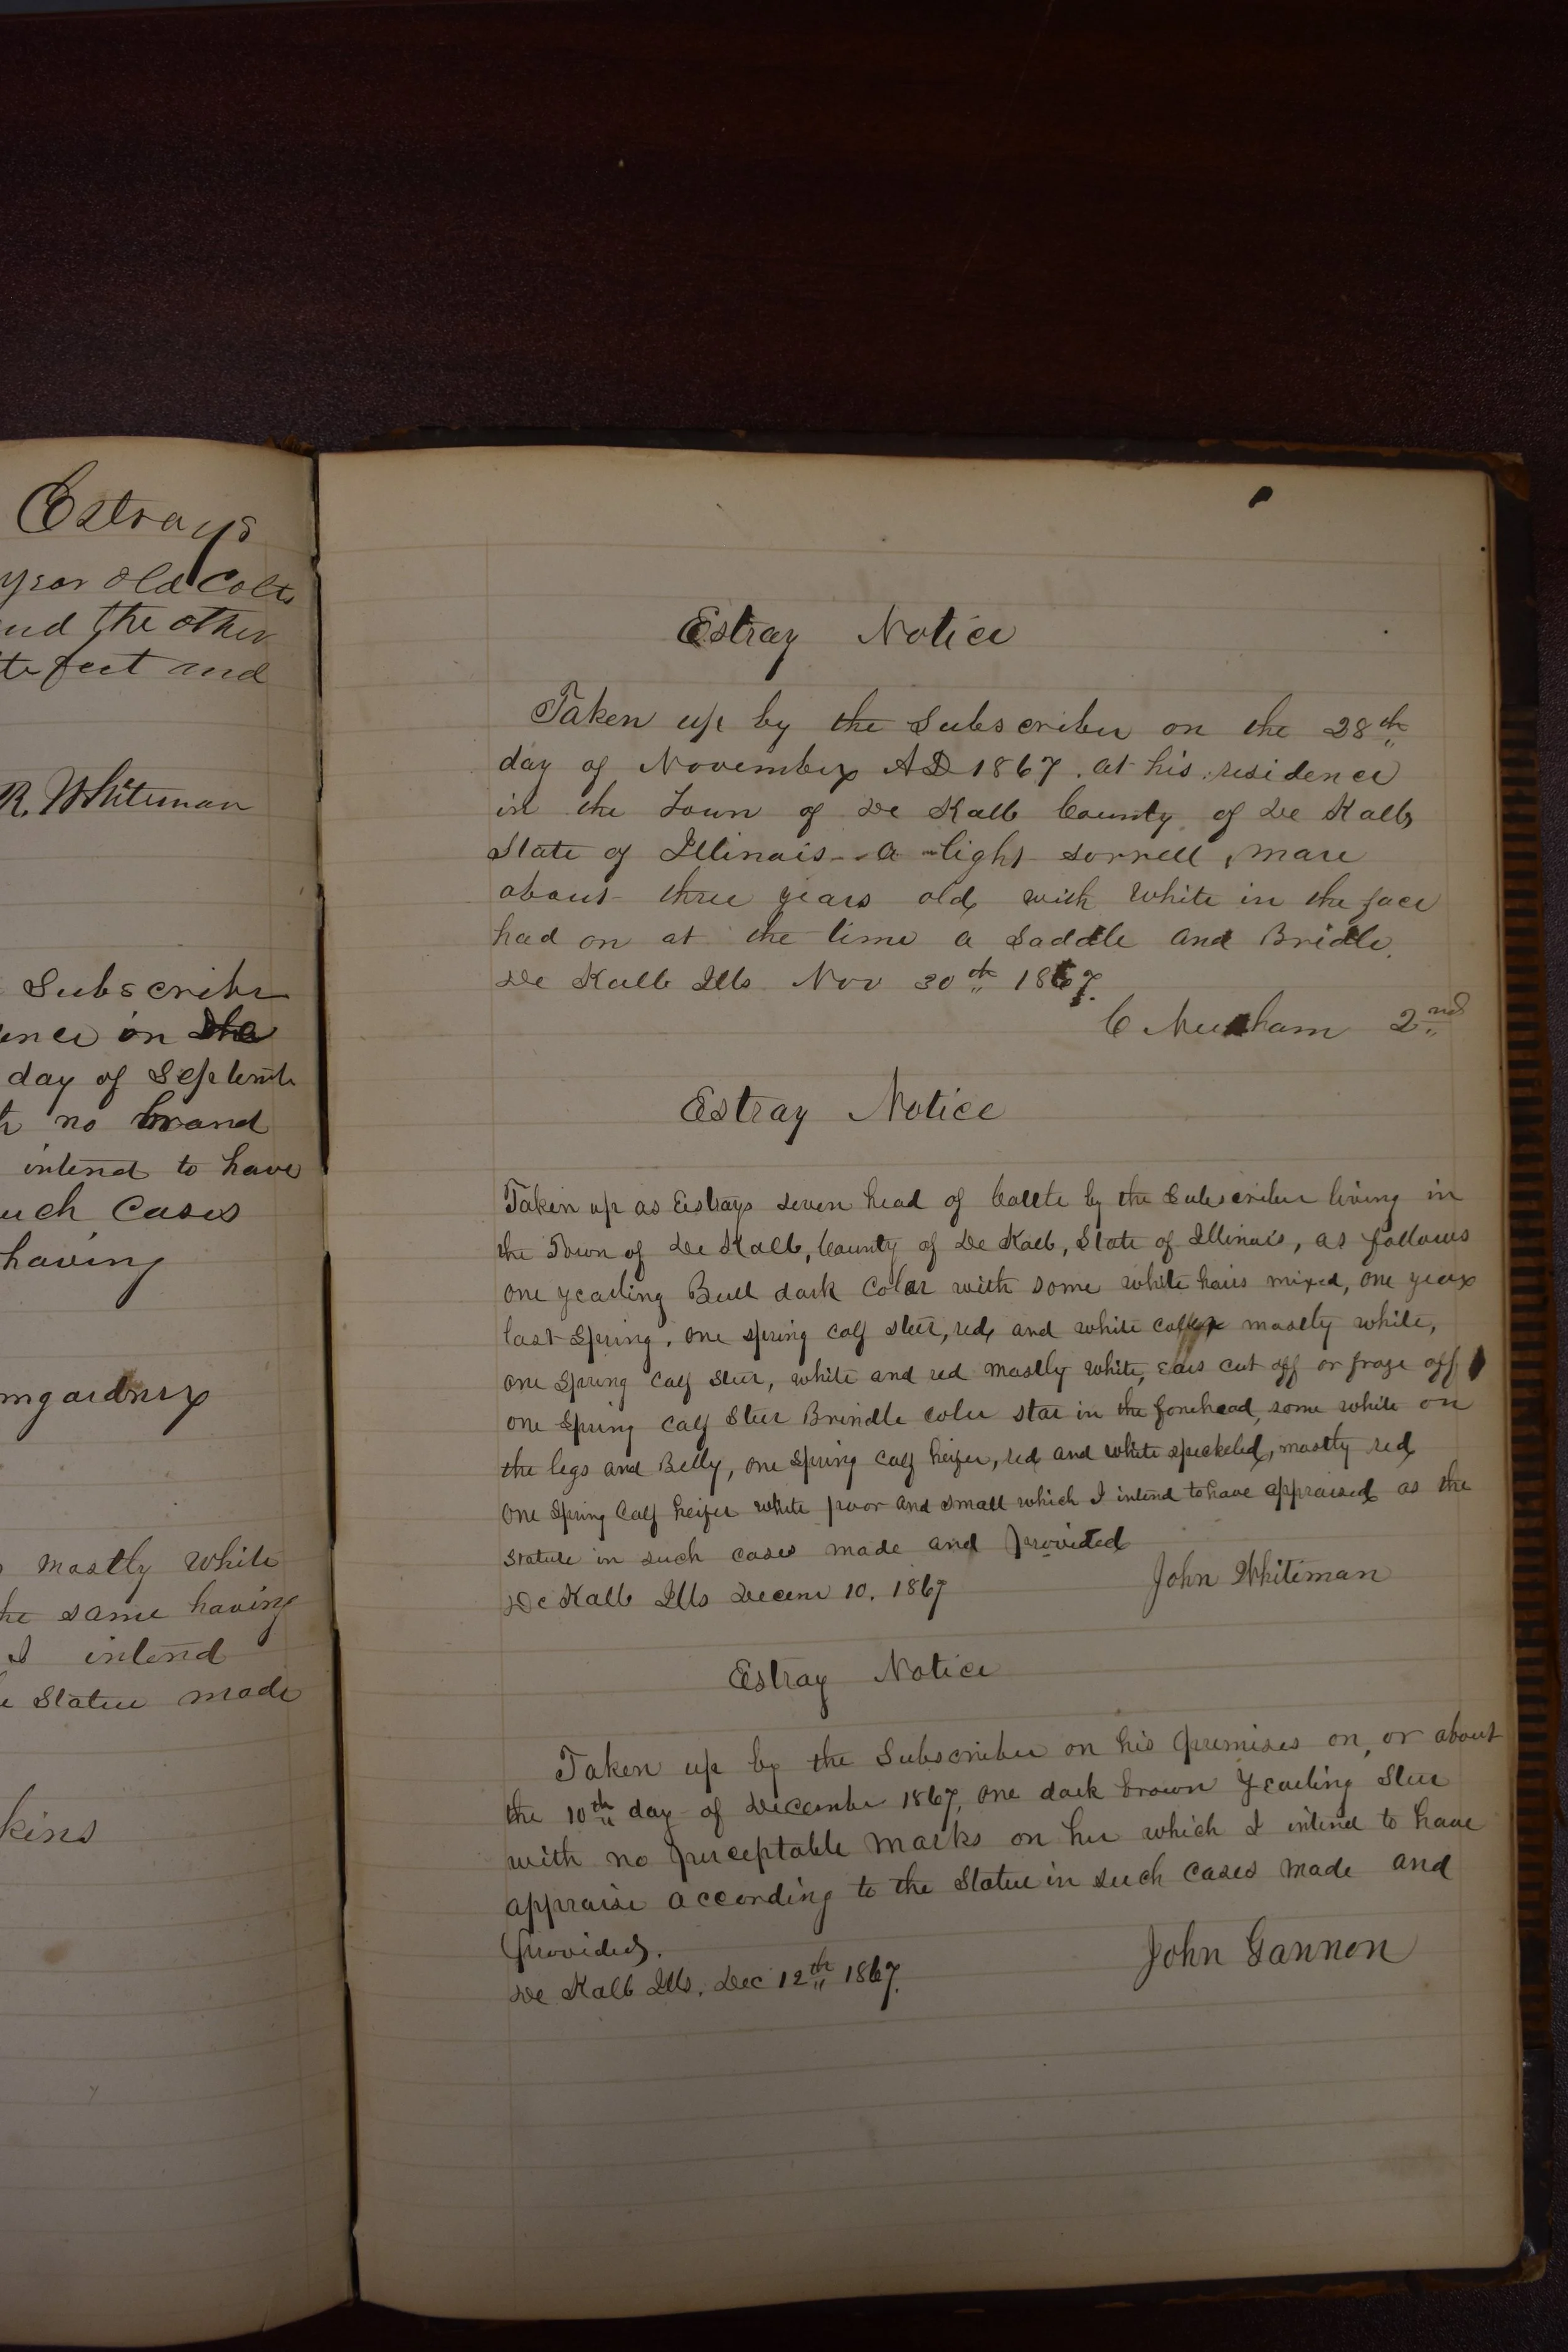 Estrays
year old Colts
and the other
te feet and
R. Whiteman
Subscriber
ence on the
day of Septemb
no brand
intend to have
such Cases
having
mgardner
mostly White
he same having
I intend
Statue made
kins
Estray Notice
Taken up by the Subscriber on the 28th
day of November AD 1867. at his residence
in the Town of De Kalb County of De Kalb
State of Illinois - a light sorrell, mare
about three years old with White in the face
had on at the time a Saddle and Bridle.
De Kalb Ills Nov 30th 1867.
C 2nd
Estray Notice
Taken up as Estrays seven head of Cattle by the Subscriber living in
the Town of De Kalb, County of De Kalb, State of Illinois, as follows
one yearling Bull dark Color with some white hairs mixed, one year
last Spring, one spring calf steer, red and white mostly white,
one Spring Calf Steer, white and red mostly white, ears cut off or froze off
one Spring Calf Steer Brindle coler star in the forehead, some white on
the legs and Belly, one Spring calf heifer, red and white speckeled, mostly red
one Spring Calf heifer white poor and small which I intend to have appraised as the
Statute in such cases made and Provided
John Whiteman
De Kalb Ills Decem 10, 1867
Estray Notice
Taken up by the Subscriber on his premises on, or about
the 10th day of December 1867, one dark brown Yearling Steer
with no perceptable marks on her which I intend to have
appraise according to the Statue in such Cases made and
provided.
John Gannon
De Kalb Ills. Dec 12th 1867.